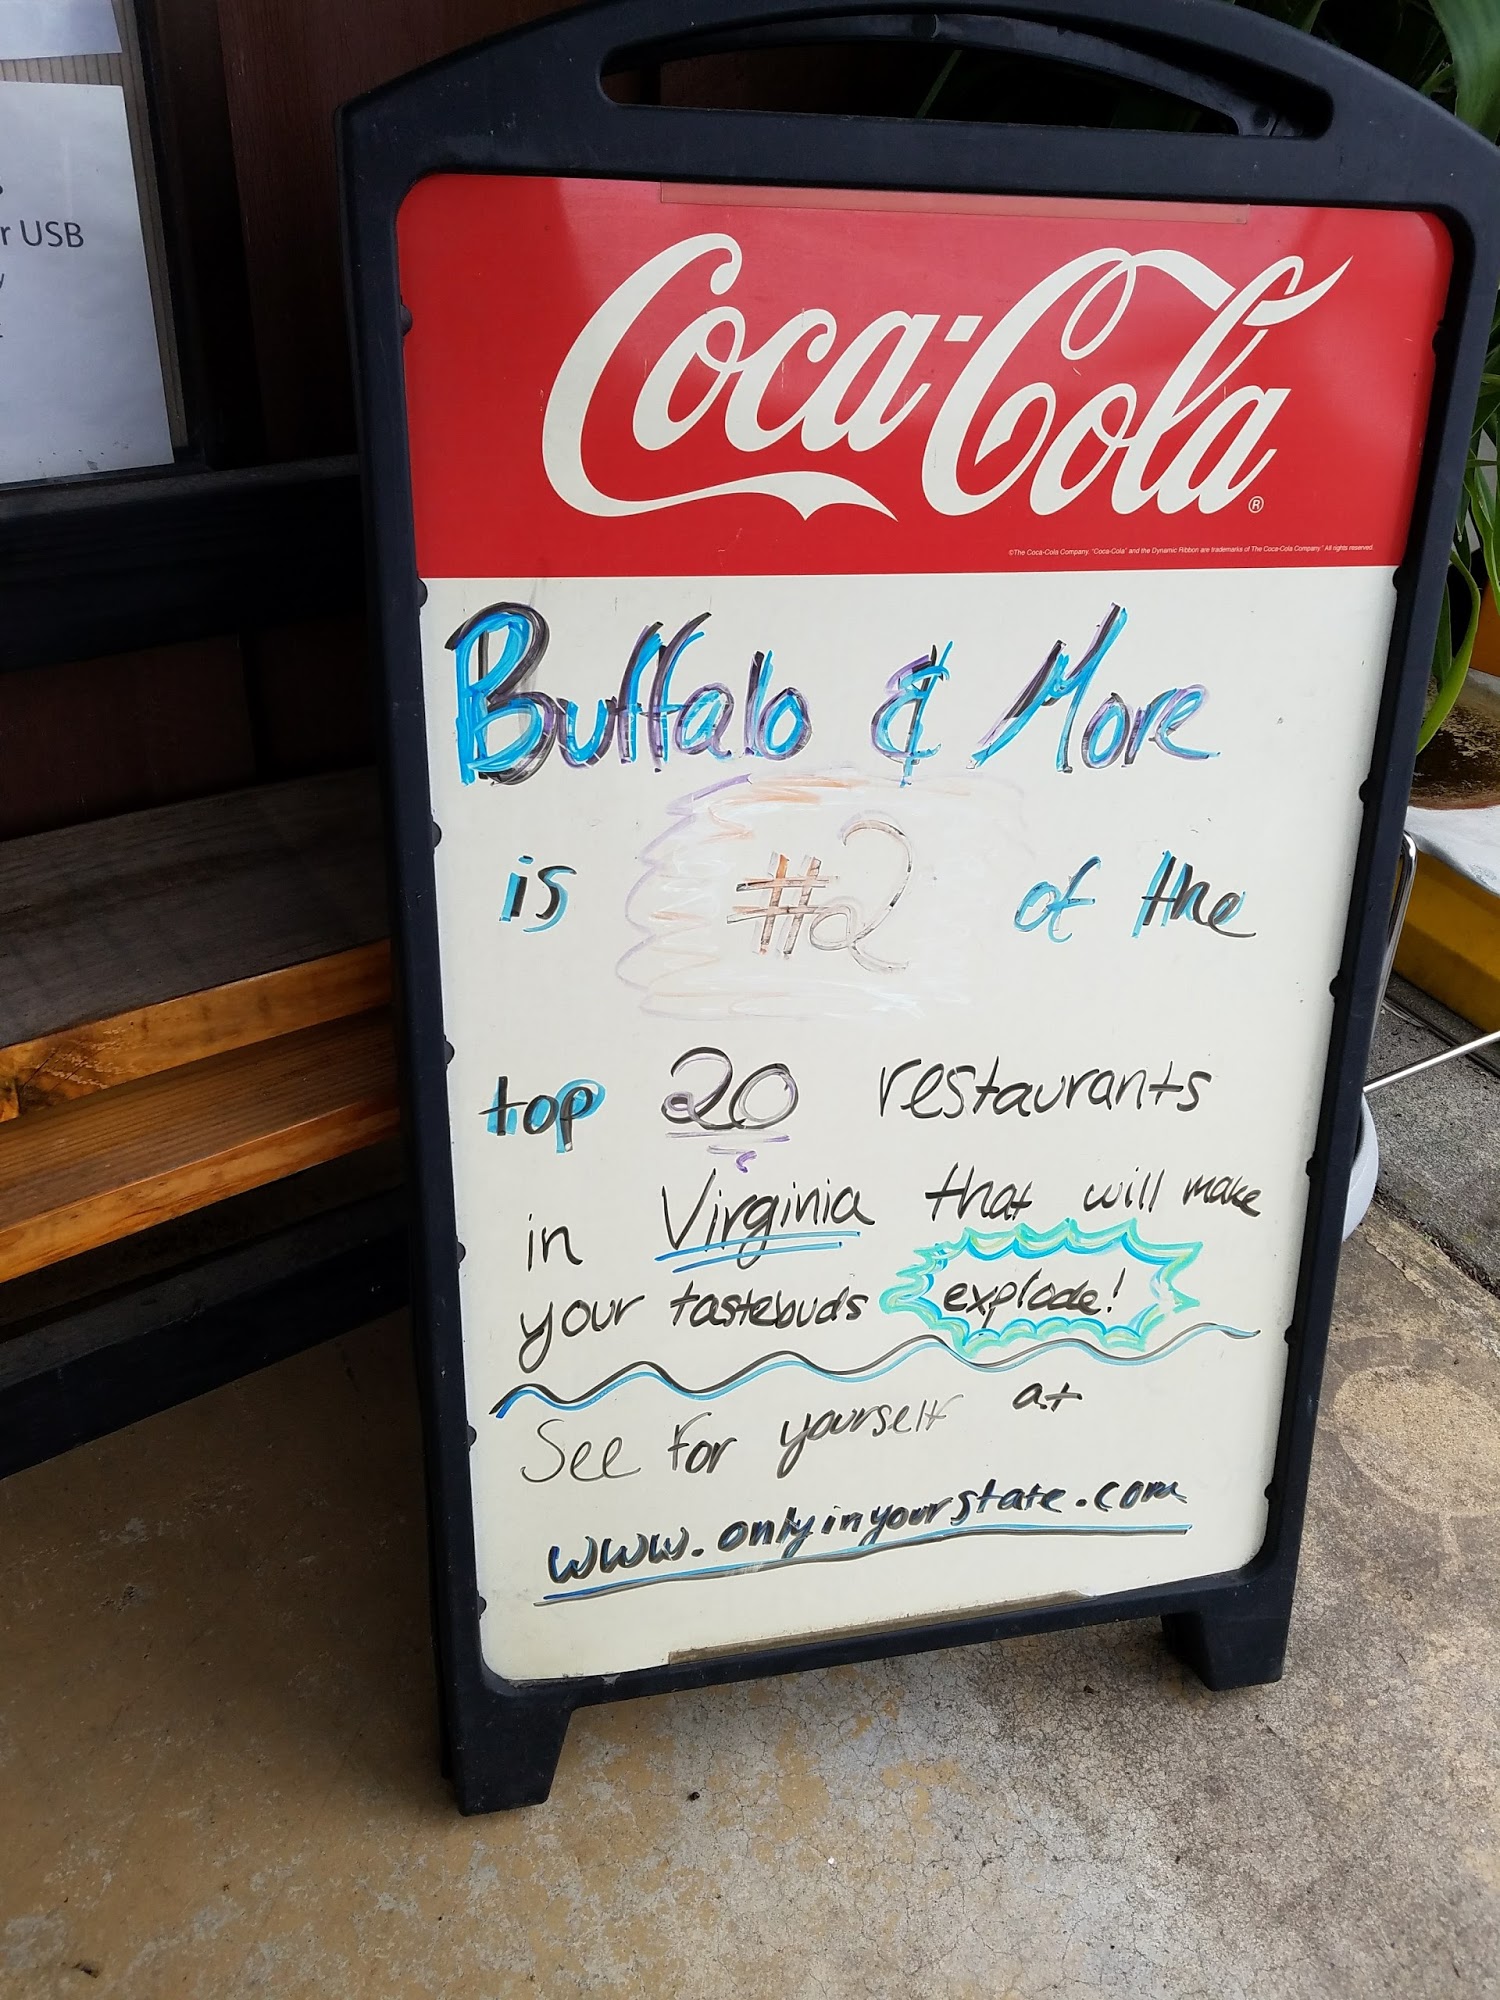 r USB
Coca-Cola®
©The Coca-Cola Company. "Coca-Cola" and the Dynamic Ribbon are trademarks of The Coca-Cola Company. All rights reserved.
Buffalo & More
is #2 of the
top 20 restaurants
in Virginia that will make
your tastebuds explode!
See for yourself at
www.onlyinyourstate.com